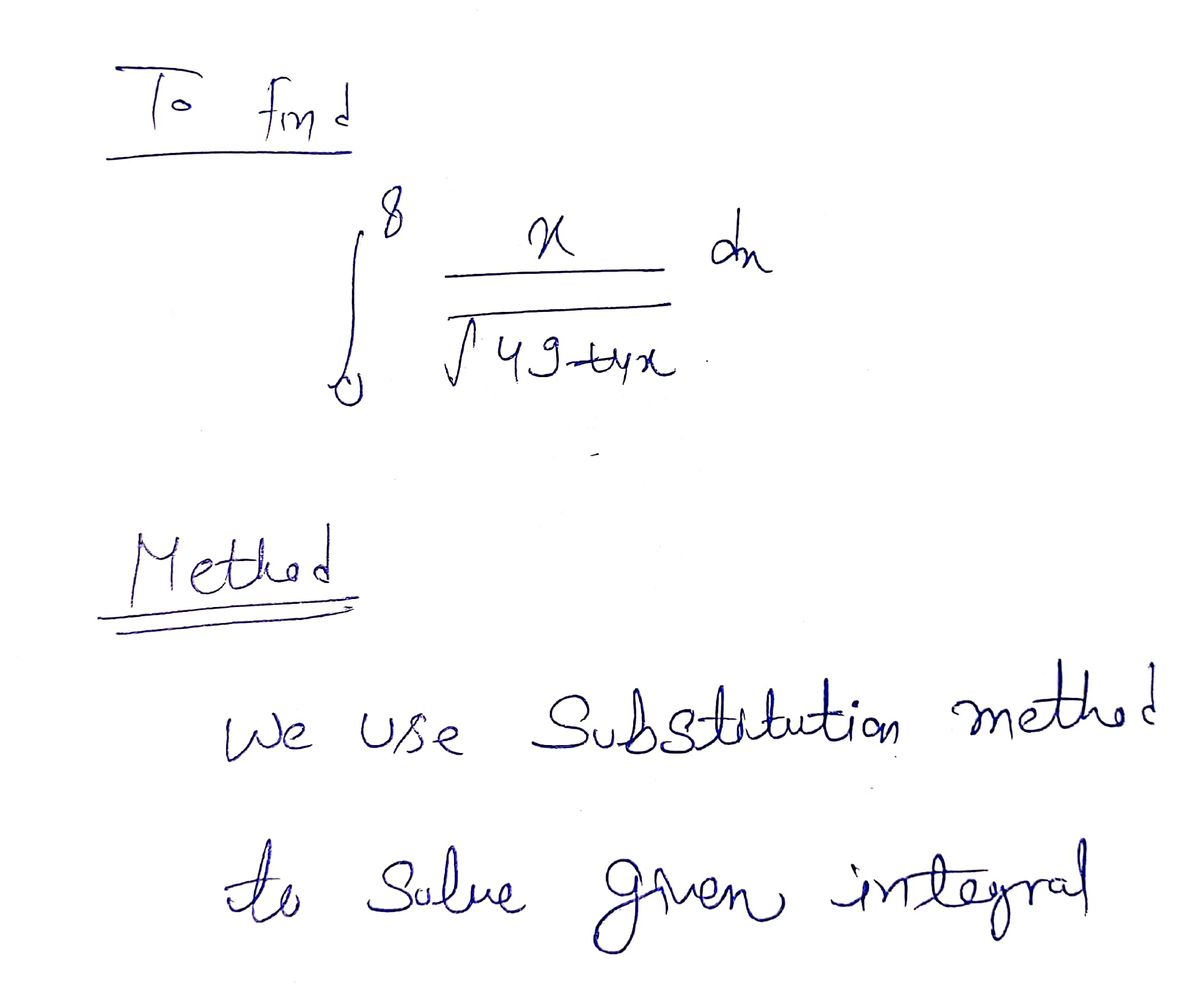 To find
∫₀⁸ x/√(49+4x) dx
Method
We use Substitution method
to Solve given integral